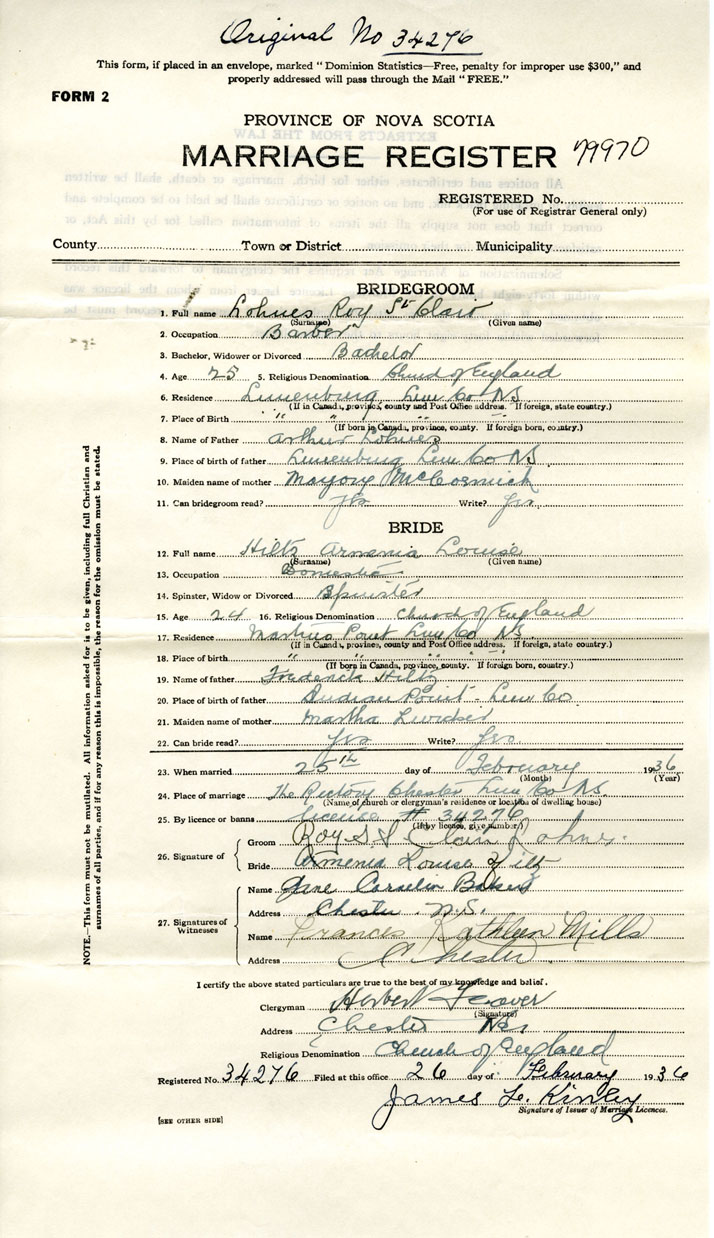 Original No 34276
This form, if placed in an envelope, marked "Dominion Statistics—Free, penalty for improper use $300," and
properly addressed will pass through the Mail "FREE."
FORM 2
PROVINCE OF NOVA SCOTIA
MARRIAGE REGISTER 79970
REGISTERED No.
(For use of Registrar General only)
County Town or District Municipality
BRIDEGROOM
1. Full name Lohnes Roy St Clair
(Surname) (Given name)
2. Occupation Barber
3. Bachelor, Widower or Divorced Bachelor
4. Age 25 5. Religious Denomination Church of England
6. Residence Lunenburg Lun Co NS
(If in Canada, province, county and Post Office address. If foreign, state country.)
7. Place of Birth " " " "
(If born in Canada, province, county. If foreign born, country.)
8. Name of Father Arthur Lohnes
9. Place of birth of father Lunenburg Lun Co NS
10. Maiden name of mother Marjory McCormick
11. Can bridegroom read? Yes Write? Yes
BRIDE
12. Full name Hiltz Armenia Louise
(Surname) (Given name)
13. Occupation Domestic
14. Spinster, Widow or Divorced Spinster
15. Age 24 16. Religious Denomination Church of England
17. Residence Martins Point Lun Co NS
(If in Canada, province, county and Post Office address. If foreign, state country.)
18. Place of birth " " " "
(If born in Canada, province, county. If foreign born, country.)
19. Name of father Frederick Hiltz
20. Place of birth of father Indian Point - Lun Co
21. Maiden name of mother Martha
22. Can bride read? Yes Write? Yes
23. When married 25th day of February 1936
(Month) (Year)
24. Place of marriage The Rectory Chester Lun Co NS
(Name of church or clergyman's residence or location of dwelling house)
25. By licence or banns license # 34276
(If by licence, give number)
26. Signature of Groom Roy St Clair Lohnes.
Bride Armenia Louise Hiltz
27. Signatures of Witnesses
Name Jane Cornelia
Address Chester N.S.
Name Frances Kathleen Mills
Address Chester
I certify the above stated particulars are true to the best of my knowledge and belief.
Clergyman Herbert
(Signature)
Address Chester NS
Religious Denomination Church of England
Registered No. 34276 Filed at this office 26 day of February 1936
James L. Kinley
Signature of Issuer of Marriage Licences.
[SEE OTHER SIDE]
NOTE.—This form must not be mutilated. All information asked for is to be given, including full Christian and
surnames of all parties, and if for any reason this is impossible, the reason for the omission must be stated.